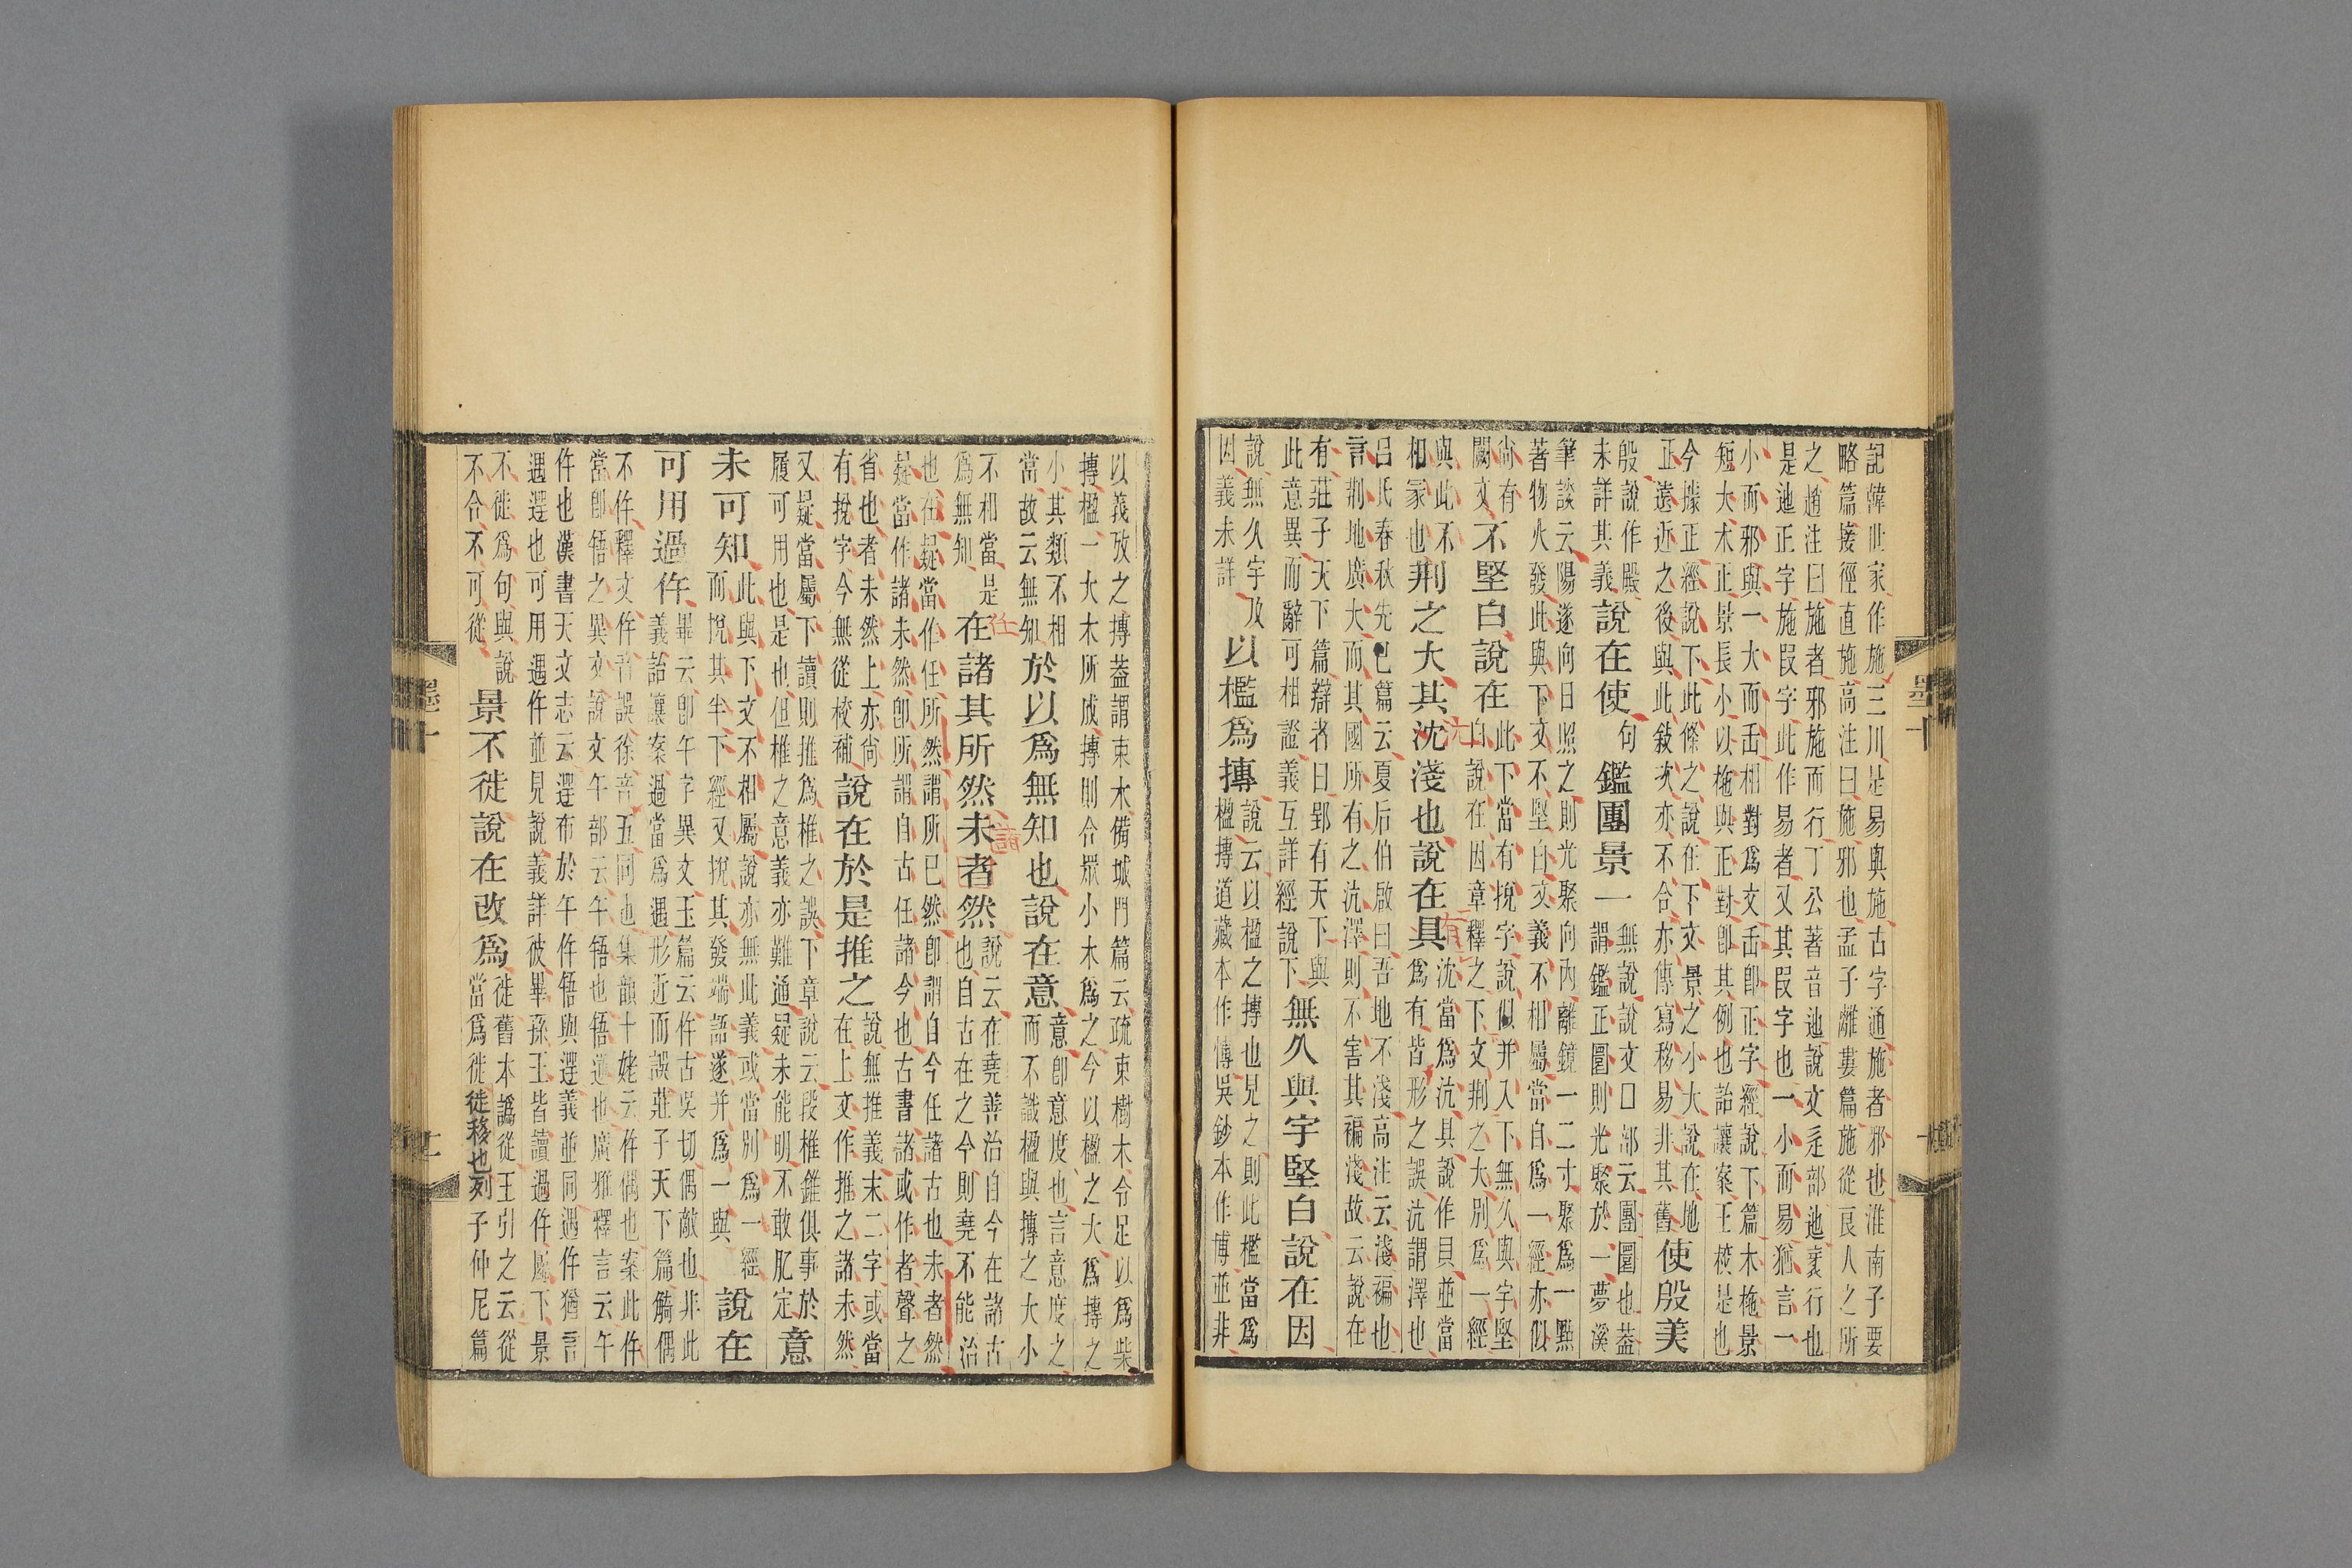 記韓世家作施三川是易與施古字通施者邪也淮南子要
略篇接徑直施高注曰施邪也孟子離婁篇施從良人之所
之趙注曰施者邪施而行丁公著音迆說文辵部迆衺行也
是迆正字施叚字此作易者又其叚字也一小而易猶言一
小而邪與一大而缶相對爲文缶卽正字經說下篇木柂景
短大木正景長小以柂與正對卽其例也詒讓案王校是也
今據正經說下此條之說在下文景之小大說在地
正遠近之後與此敍次亦不合亦傳寫移易非其舊使殷美
殷說作殿
未詳其義說在使句鑑團景一無說說文囗部云團圜也葢
謂鑑正圜則光聚於一夢溪
筆談云陽遂向日照之則光聚向內離鏡一二寸聚爲一㸃
著物火發此與下文不堅白文義不相屬當自爲一經亦似
尙有
闕文不堅白說在此下當有挩字說似并入下無久與宇堅
白說在因章釋之下文荆之大別爲一經
與此不
相冡也荆之大其沈淺也說在具沈當爲沆具說作貝並當
爲有皆形之誤沆謂澤也
呂氏春秋先己篇云夏后伯啟曰吾地不淺高注云淺褊也
言荆地廣大而其國所有之沆澤則不害其褊淺故云說在
有莊子天下篇辯者曰郢有天下與
此意異而辭可相證義互詳經說下無久與宇堅白說在因
說無久宇及
因義未詳以檻爲摶說云以楹之摶也見之則此檻當爲
楹摶道藏本作慱吳鈔本作博並非
以義攷之摶葢謂束木備城門篇云疏束樹木令足以爲柴
摶楹一大木所成摶則合眾小木爲之今以楹之大爲摶之
小其類不相
當故云無知於以爲無知也說在意意卽意度也言意度之
而不識楹與摶之大小
不相當是
爲無知在諸其所然未者然說云在堯善治自今在諸古
也自古在之今則堯不能治
也在疑當作任所然謂所已然卽謂自今任諸古也未者然
疑當作諸未然卽所謂自古任諸今也古書諸或作者聲之
省也者未然上亦尙
有挩字今無從校補說在於是推之說無推義末二字或當
在上文作推之諸未然
又疑當屬下讀則推爲椎之誤下章說云段椎錐俱事於
履可用也是也但椎之意義亦難通疑未能明不敢肊定意
未可知此與下文不相屬說亦無此義或當別爲一經
而挩其半下經又挩其發端語遂并爲一與說在
可用過仵畢云卽午字異文玉篇云仵古吳切偶敵也非此
義詒讓案過當爲遇形近而誤莊子天下篇觭偶
不仵釋文仵音誤徐音五同也集韻十姥云仵偶也案此仵
當卽啎之異文說文午部云午啎也啎逆也廣雅釋言云午
仵也漢書天文志云遻布於午仵啎與遻義並同遇仵猶言
遇遻也可用遇仵並見說義詳彼畢孫王皆讀過仵屬下景
不徙爲句與說
不合不可從景不徙說在改爲徙舊本譌從王引之云從
當爲徙徙移也列子仲尼篇